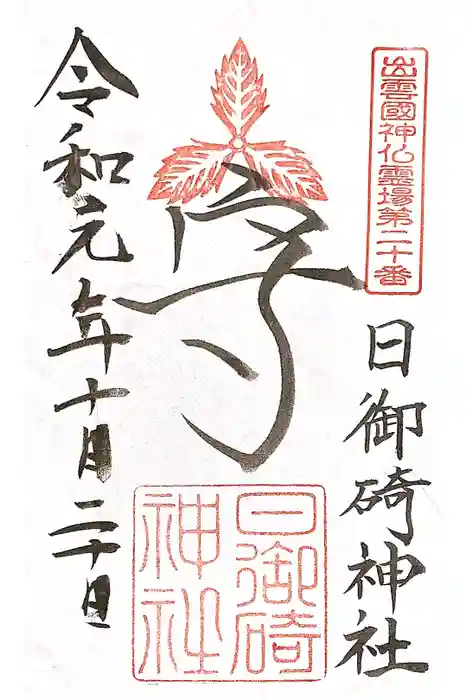 出雲國神仏霊場第二十番
日御碕神社
日御碕
神社
令和元年十月二十日